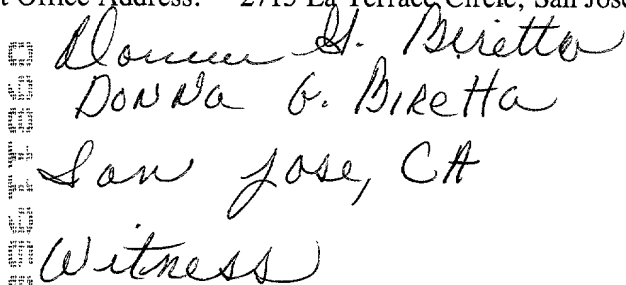 t Office Address: 2715 La Terrace Circle, San Jose
Donna G. Biretta
DONNA G. BIRetta
San Jose, CA
Witness